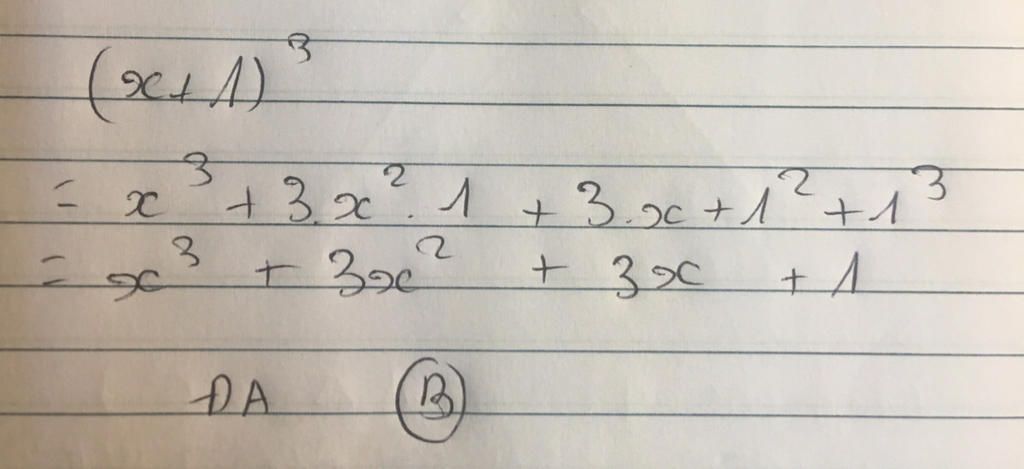 (x+1)³
= x³ + 3.x².1 + 3.x+1² +1³
= x³ + 3x² + 3x + 1
ĐA B